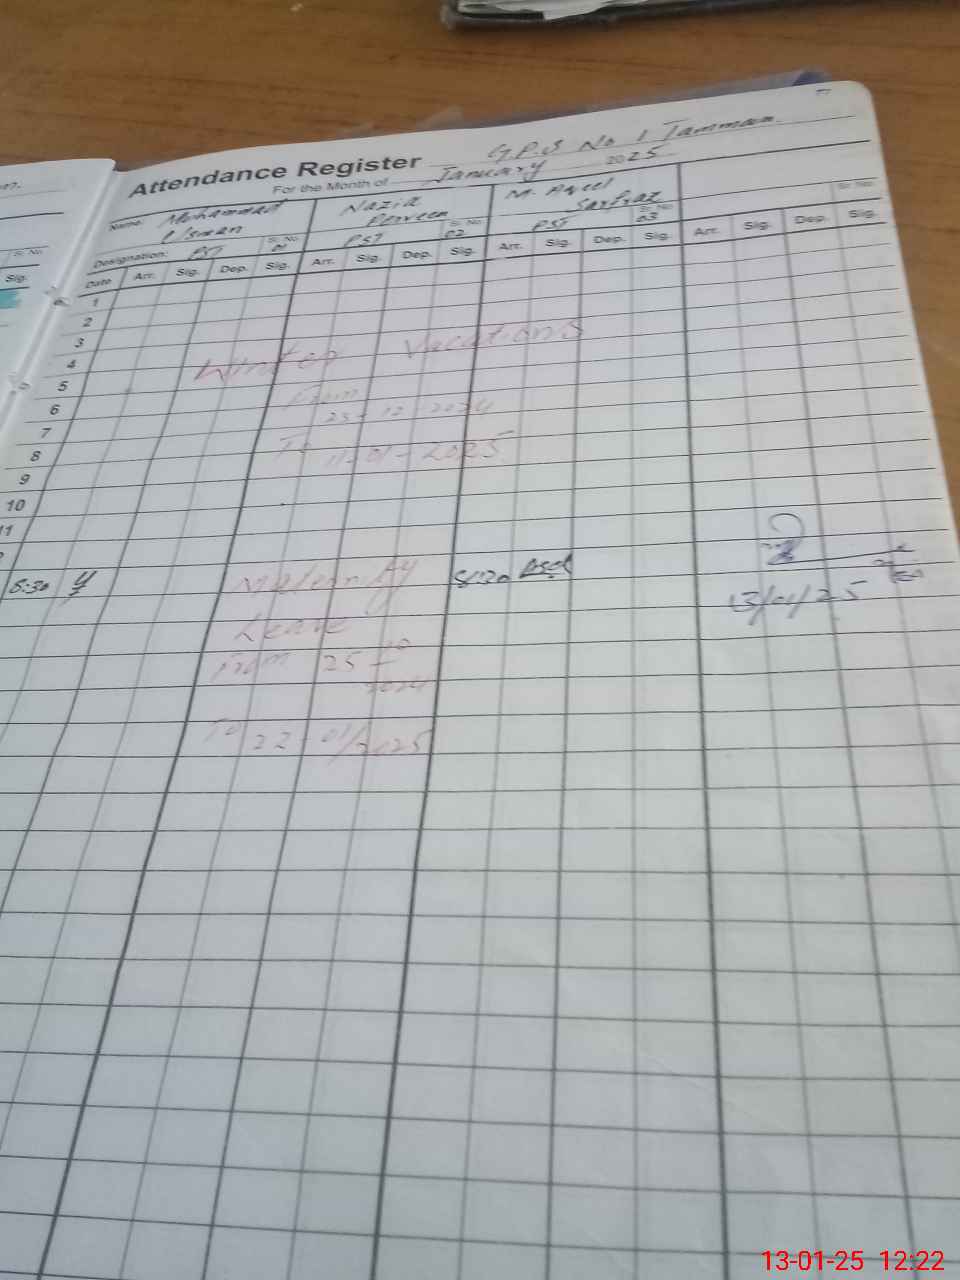 Attendance Register G.P.S No 1 Tamman
For the Month of January 2025
Name: Muhammad Usman Nazia Perveen M. Aqeel Sarfraz
Designation: PST Sr. No. 01 PST Sr. No. 02 PST Sr. No. 03 Sr. No.
Date Arr. Sig. Dep. Sig. Arr. Sig. Dep. Sig. Arr. Sig. Dep. Sig. Arr. Sig. Dep. Sig.
Sr. No.
Sig.
1
2
3
4 Winter Vacations
5
6 From
7 23-12-2024
8 To 11-01-2025
9
10
11
8:30 Maternity
Leave 13/01/25
From 25 10
2024
To 22-01/2025
13-01-25 12:22